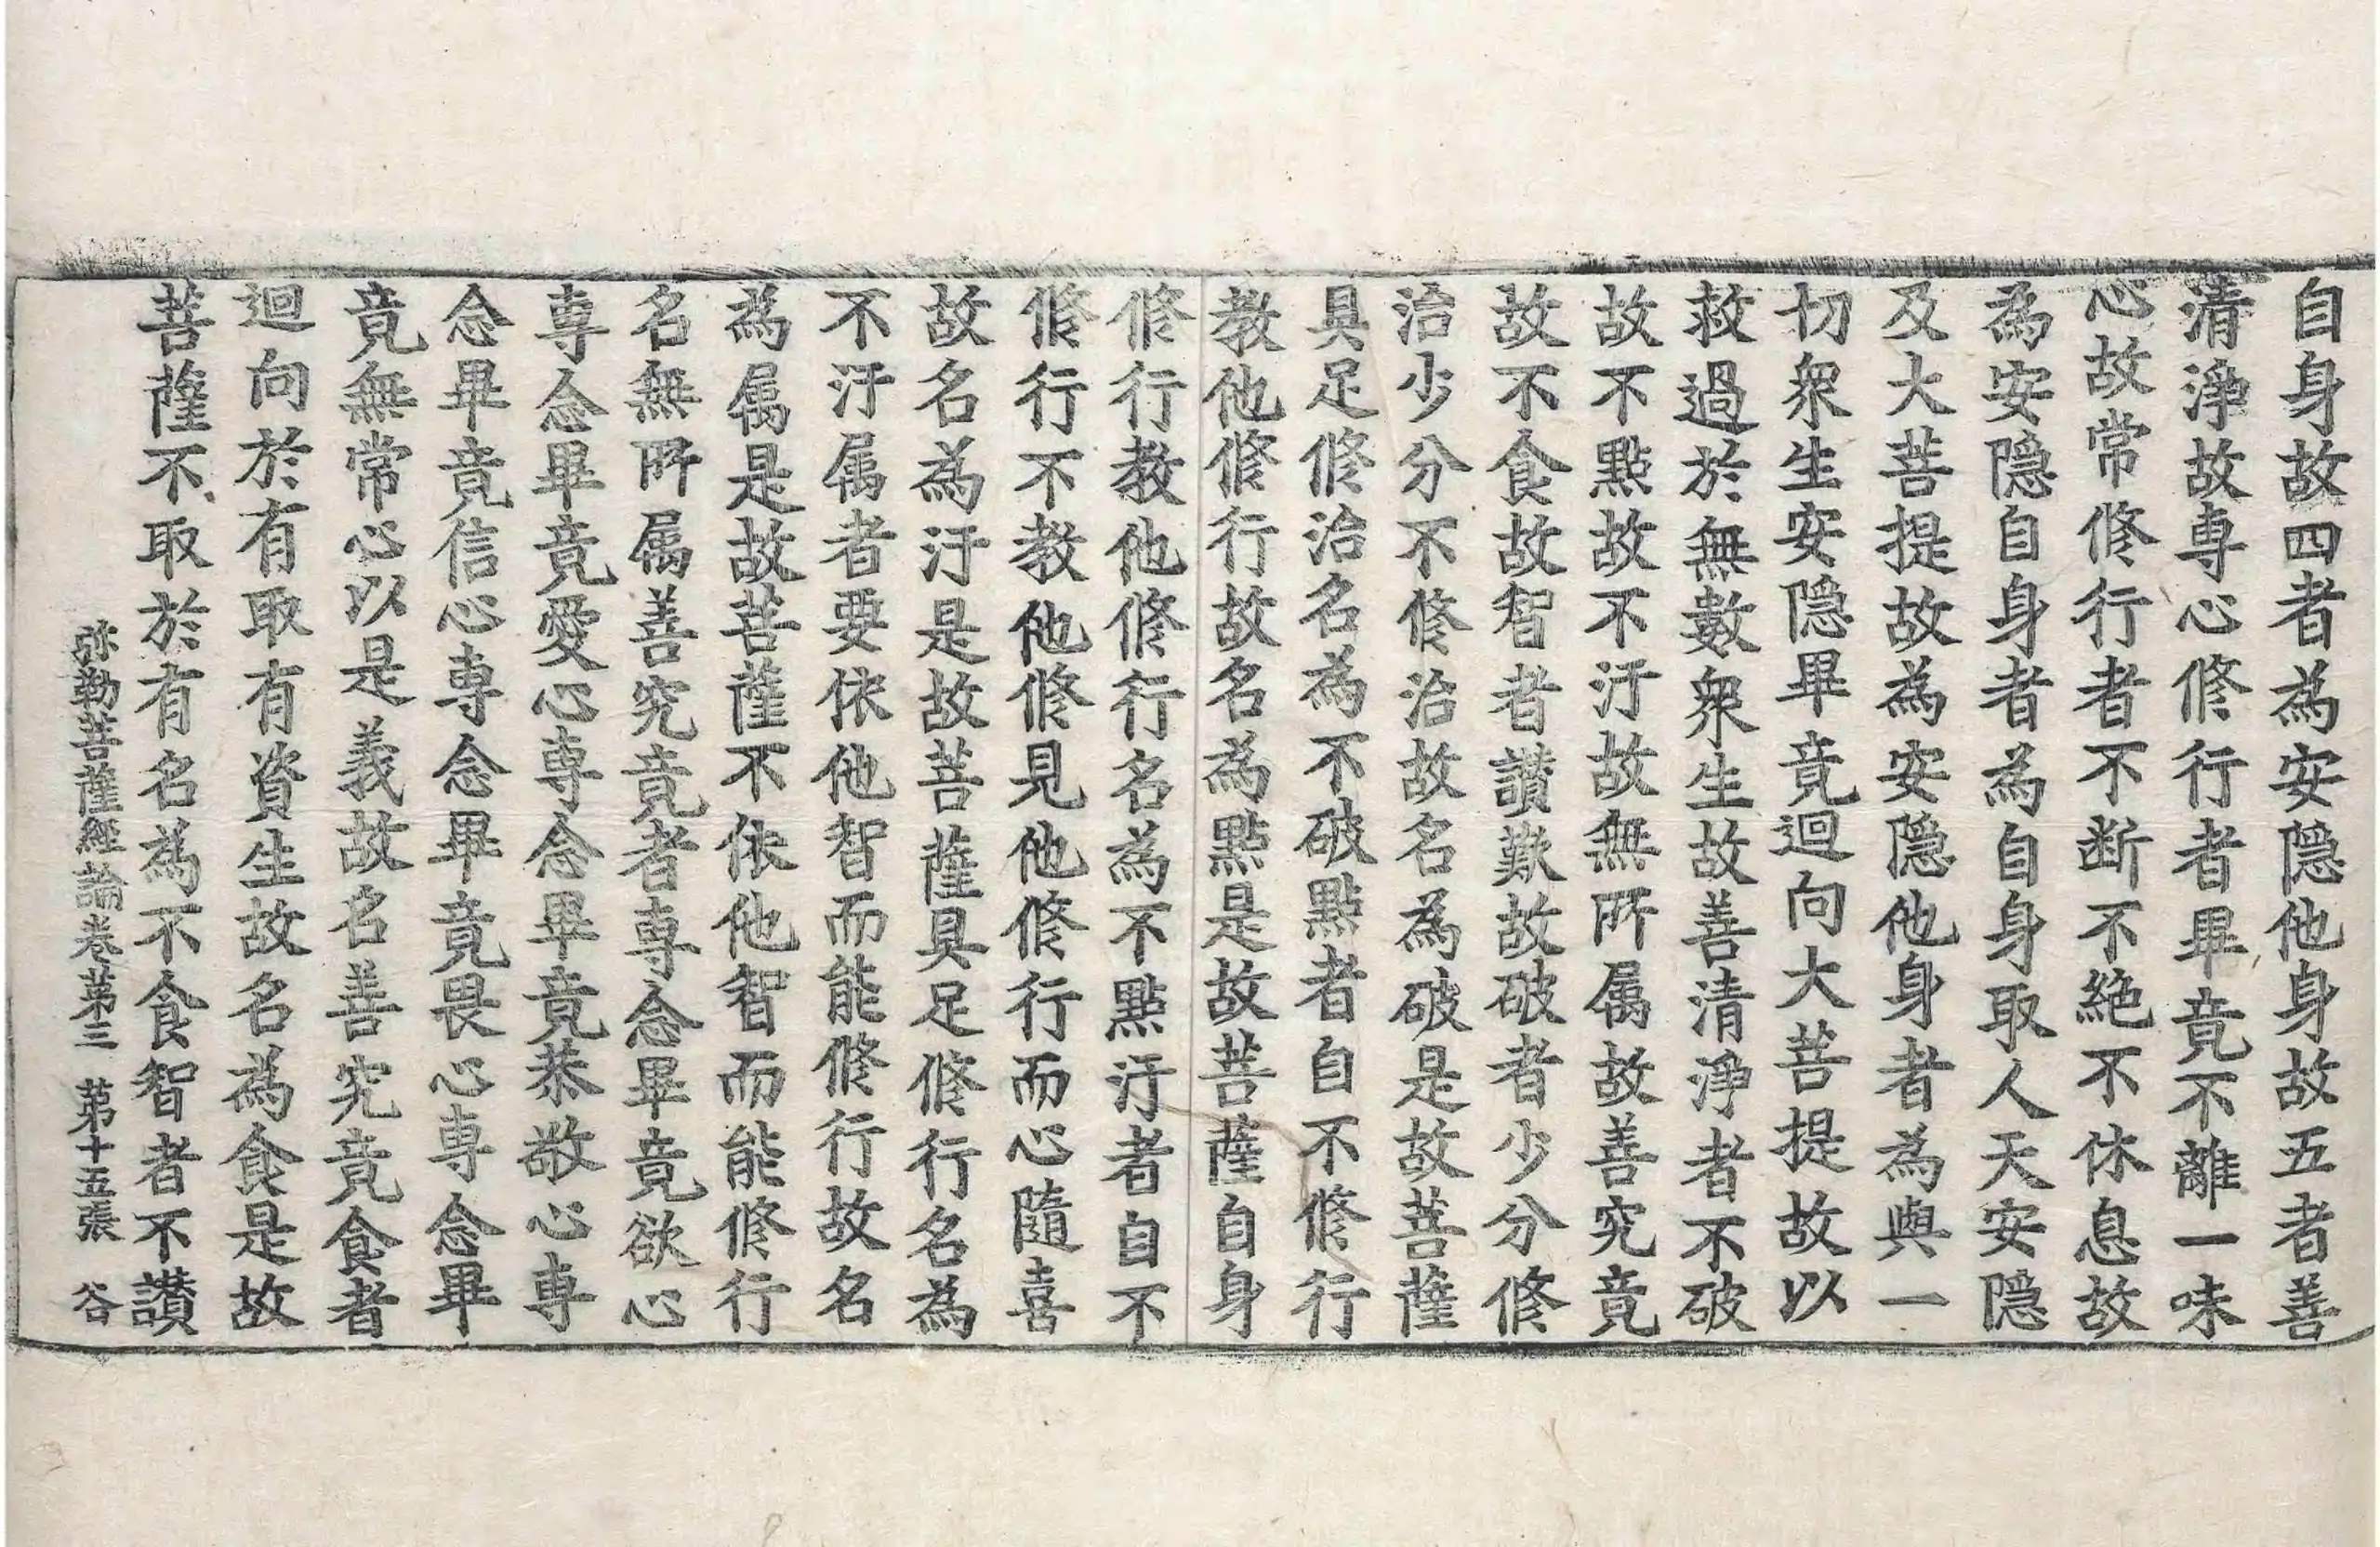 自身故四者為安隱他身故五者善
清淨故專心修行者畢竟不離一味
心故常修行者不断不絕不休息故
為安隱自身者為自身取人天安隱
及大菩提故為安隱他身者為與一
切衆生安隱畢竟迴向大菩提故以
救過於無數衆生故善清淨者不破
故不點故不汙故無所属故善究竟
故不食故智者讃歎故破者少分修
治少分不修治故名為破是故菩薩
具足修治名為不破點者自不修行
教他修行故名為點是故菩薩自身
修行教他修行名為不點汙者自不
修行不教他修見他修行而心隨喜
故名為汙是故菩薩具足修行名為
不汙属者要依他智而能修行故名
為属是故菩薩不依他智而能修行
名無所属善究竟者專念畢竟欲心
專念畢竟愛心專念畢竟恭敬心專
念畢竟信心專念畢竟畏心專念畢
竟無常心以是義故名善究竟食者
迴向於有取有資生故名為食是故
菩薩不取於有名為不食智者不讃
弥勒菩薩經論卷第三 第十五張 谷